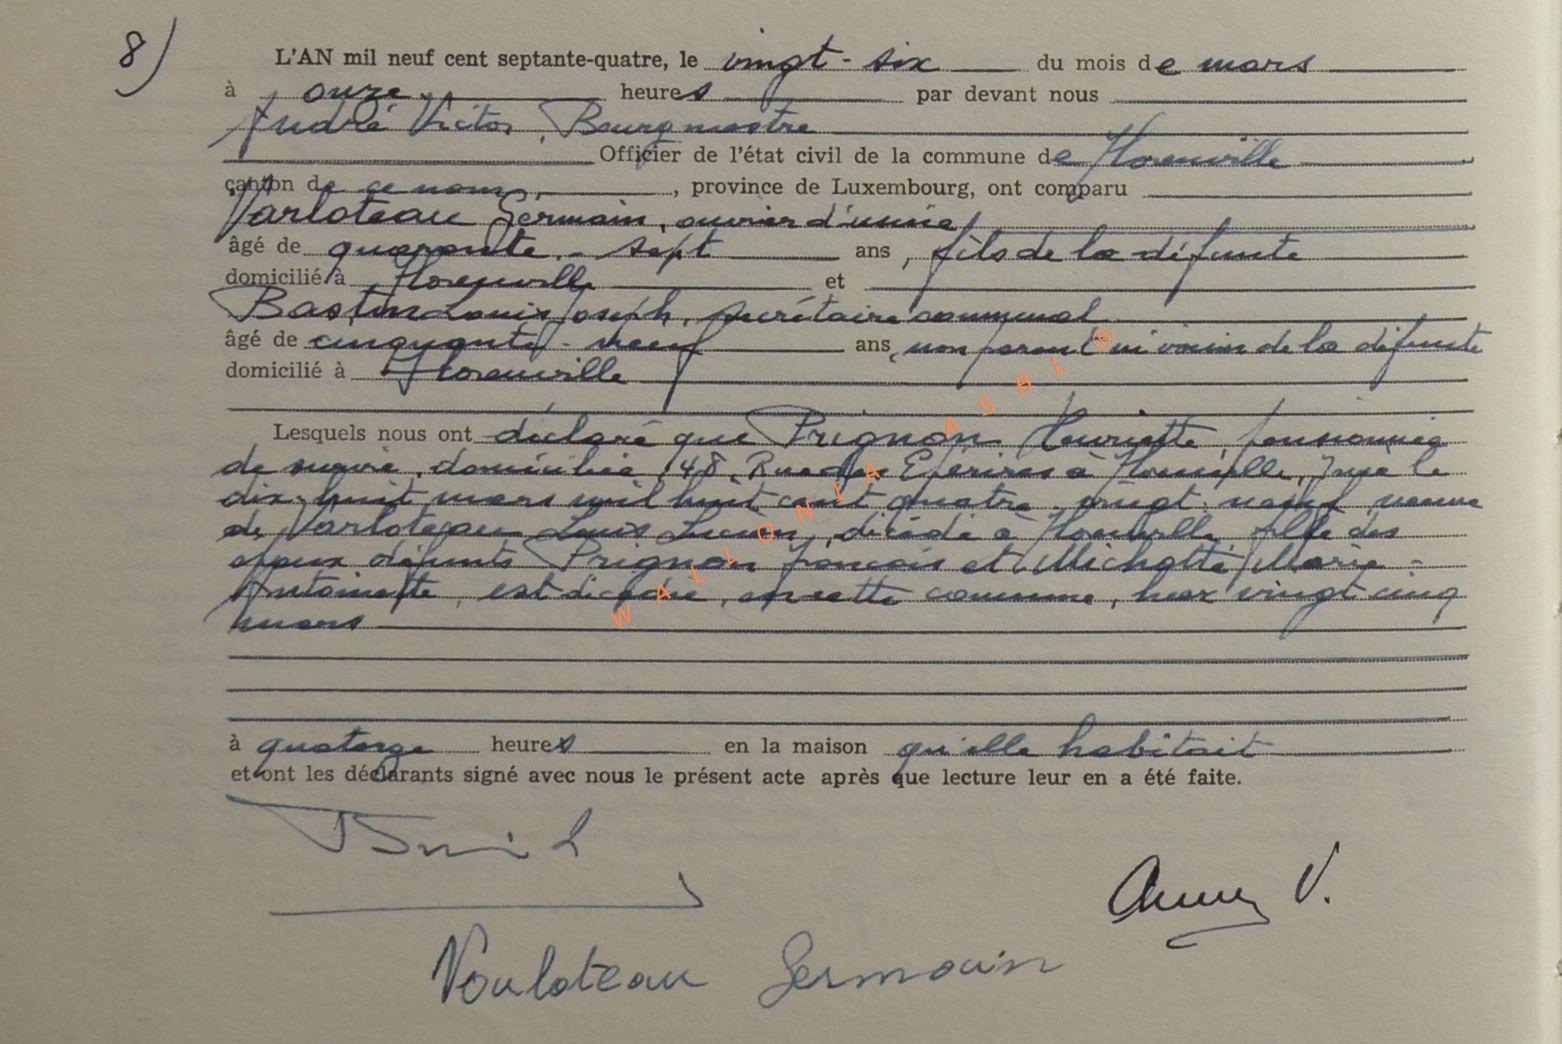 8)
L'AN mil neuf cent septante-quatre, le vingt-six du mois de mars
à onze heures par devant nous
André Victor, Bourgmestre
Officier de l'état civil de la commune de Florenville
canton de ce nom, province de Luxembourg, ont comparu
Varloteau Germain, ouvrier d'usine
âgé de quarante-sept ans, fils de la défunte
domicilié à Florenville et
Bastin Louis Joseph, secrétaire communal
âgé de cinquante-neuf ans, non parent ni voisin de la défunte
domicilié à Florenville
Lesquels nous ont déclaré que Prignon Henriette, pensionnée
de survie, domiciliée, 48, Rue des à Florenville, née le
dix-huit mars mil huit cent quatre-vingt neuf, veuve
de Varloteau Louis Lucien, décédé à Florenville, fille des
époux défunts Prignon François et Michotte Marie-
Antoinette, est décédée, en cette commune, hier vingt cinq
mars
à quatorze heures en la maison qu'elle habitait
et ont les déclarants signé avec nous le présent acte après que lecture leur en a été faite.
V.
Vouloteau Germain
WALLONIA ASBL ®